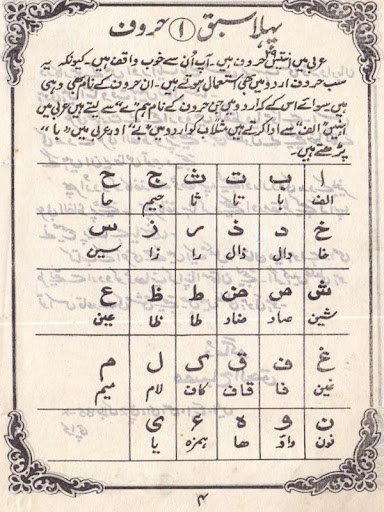 پہلا سبق ۱ حروف
عربی میں انتیس ۲۹ حروف ہیں۔ آپ اُن سے خوب واقف ہیں۔ کیونکہ یہ
سب حروف اردو میں بھی استعمال ہوتے ہیں۔ ان حروف کے نام بھی وہی
ہیں سوائے اس کے کہ اردو میں جن حروف کے نام ہم "ے" سے لیتے ہیں عربی میں
انہیں "الف" سے ادا کرتے ہیں مثلاً ب کو اردو میں "بے" اور عربی میں "با"
پڑھتے ہیں۔
ا ب ت ث ج ح
الف با تا ثا جیم حا
خ د ذ ر ز س
خا دال ذال را زا سین
ش ص ض ط ظ ع
شین صاد ضاد طا ظا عین
غ ف ق ک ل م
غین فا قاف کاف لام میم
ن و ہ ء ی
نون واؤ ھا ہمزہ یا
۴